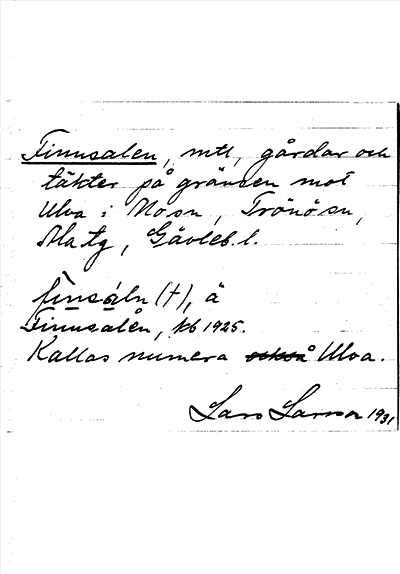 Finnsalen, mtl, gårdar och
täkter på gränsen mot
Ulva i Mosn, Trönö sn,
Ala tg, Gävleb. l.
finsáln (+), ä
Finnsalen, kb 1925.
Kallas numera också Ulva.
Lars Larson 1931